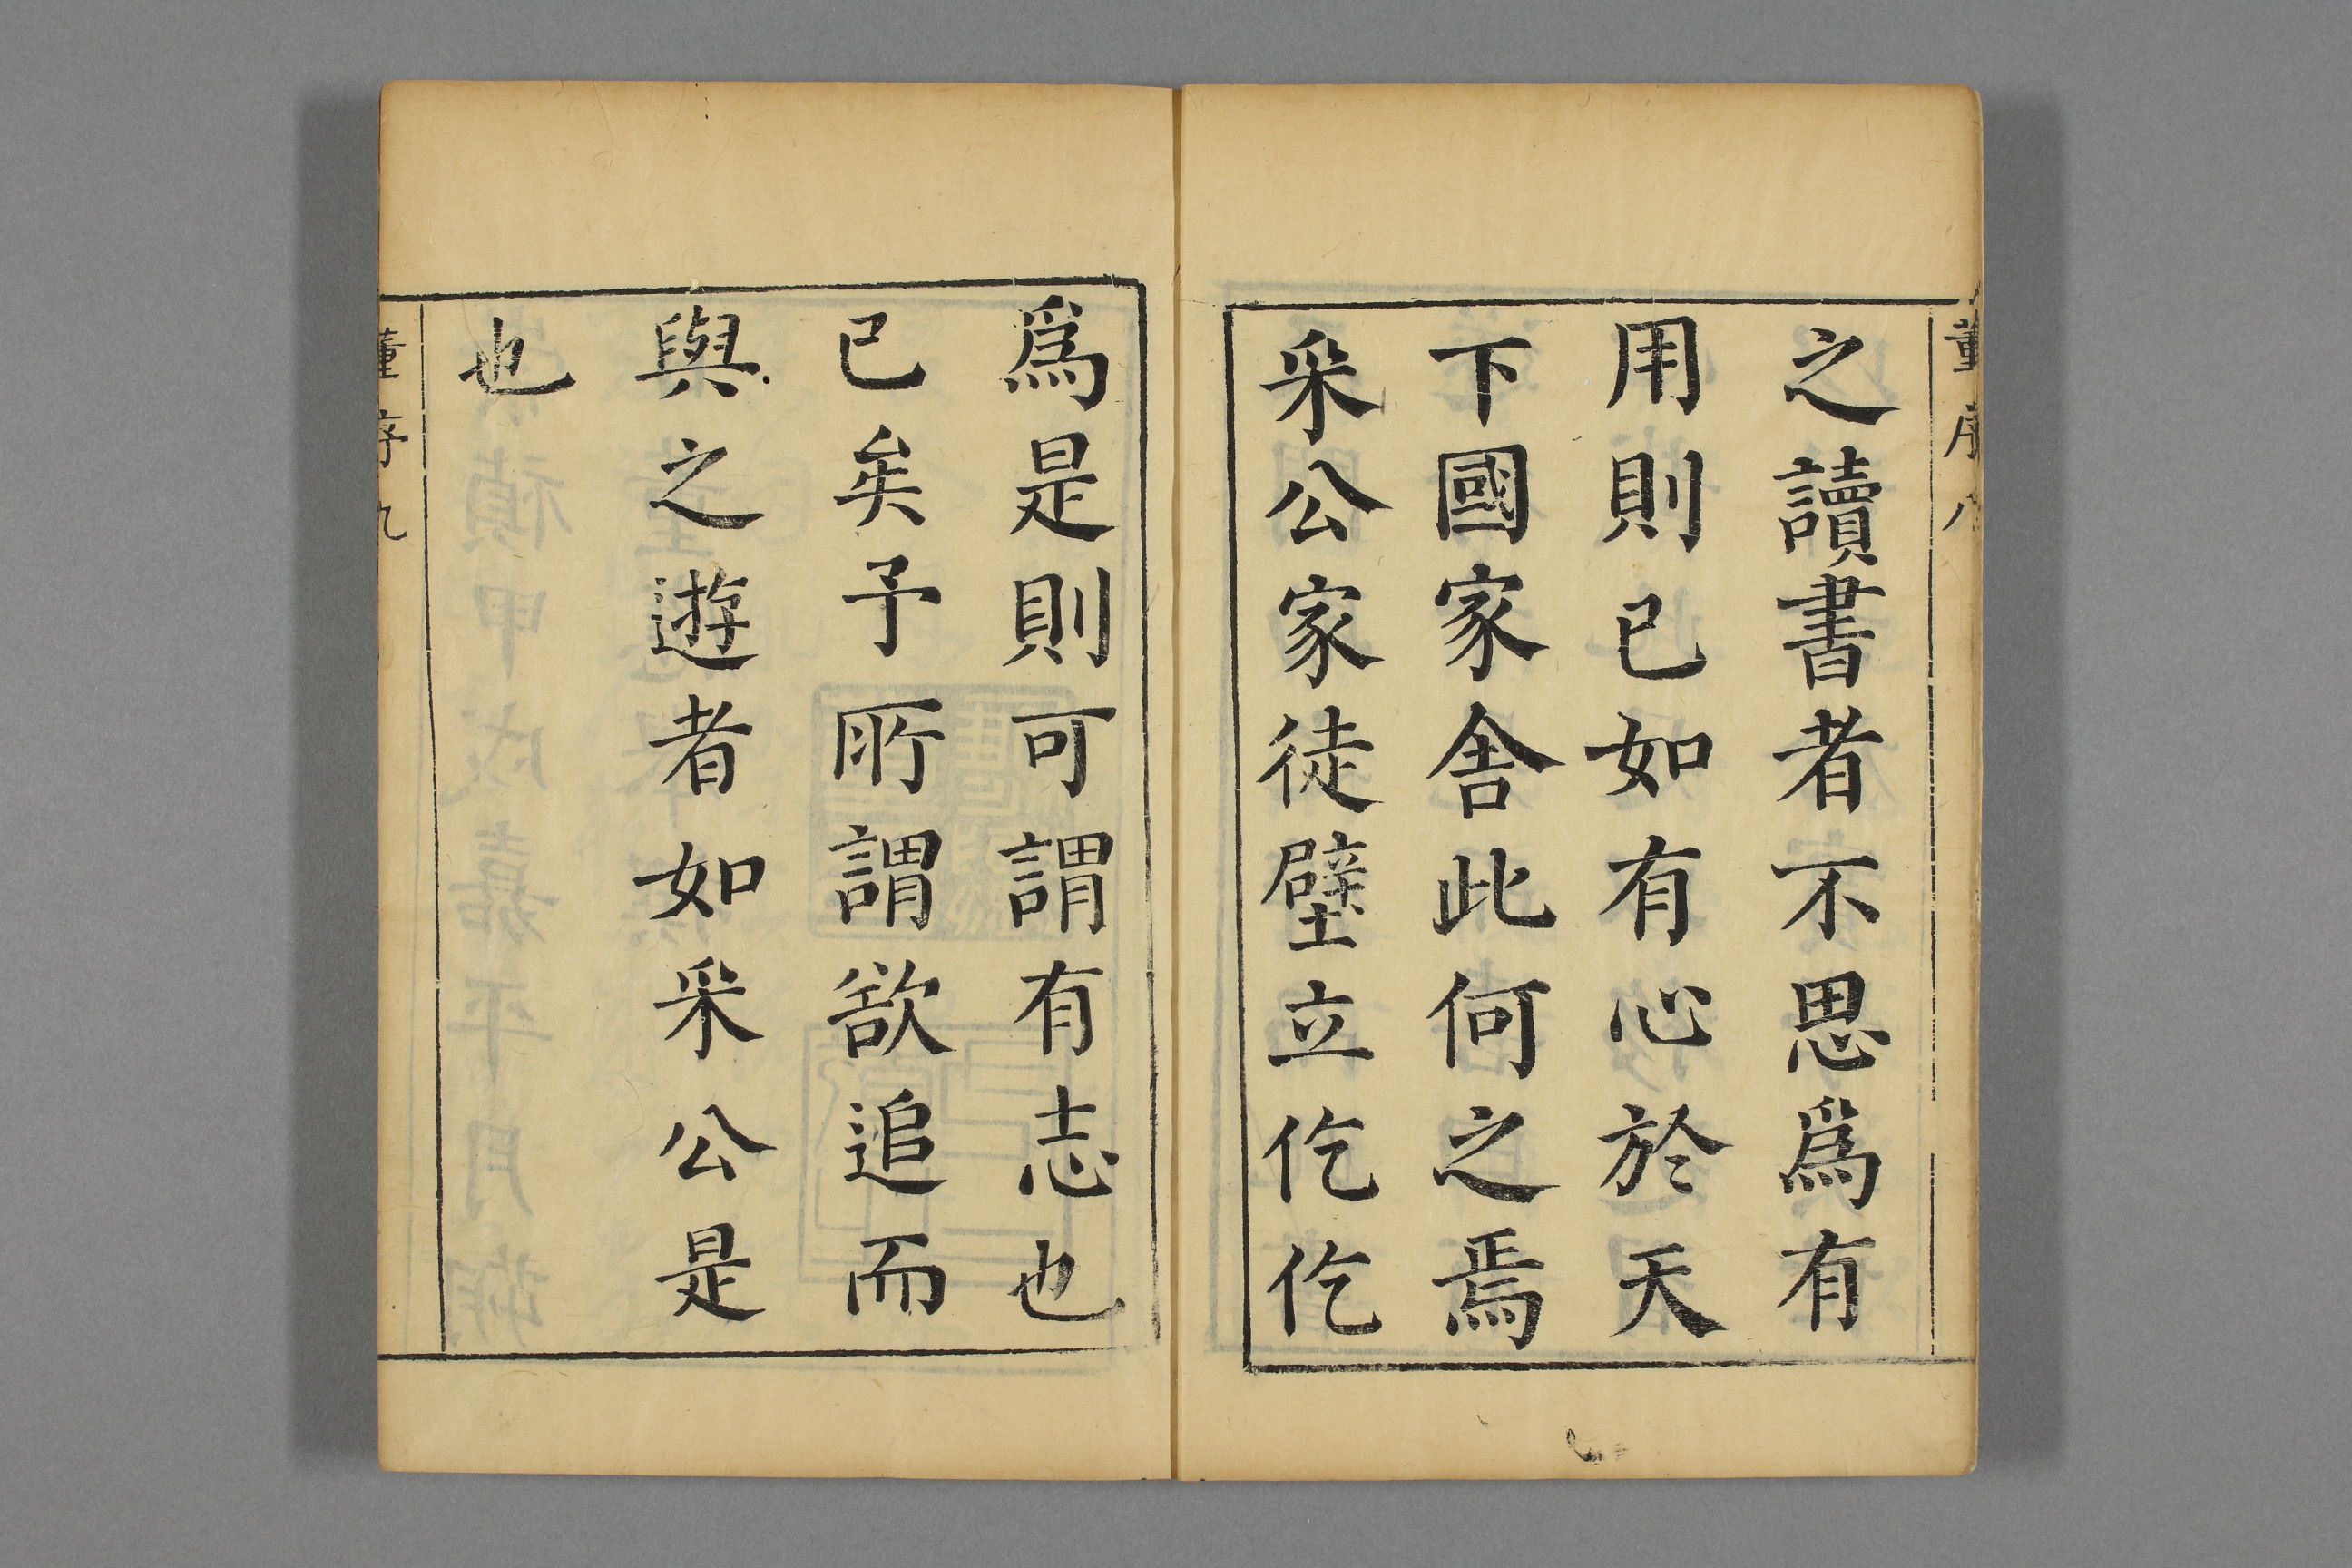 董序八
之讀書者不思爲有
用則已如有心於天
下國家舍此何之焉
采公家徒壁立仡仡
爲是則可謂有志也
已矣予所謂欲追而
與之遊者如采公是
也
董序九